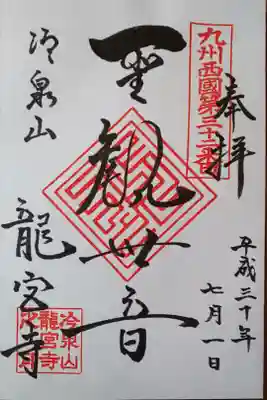 奉拝
九州西國第三十二番
平成三十年
七月一日
聖観世音
冷泉山
龍宮寺
冷泉山
龍宮寺